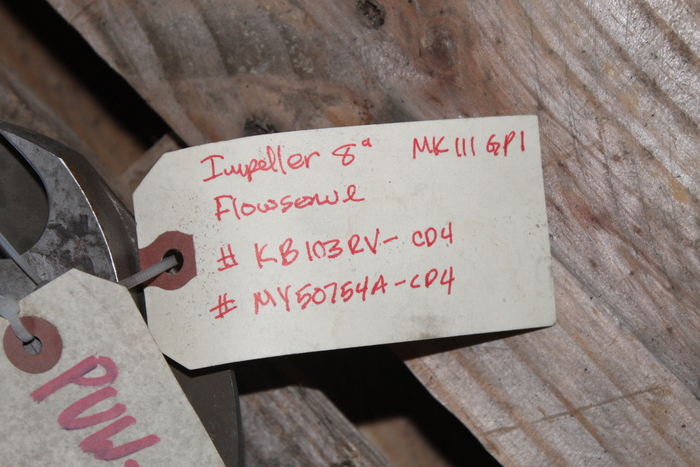 Impeller 8" MK III GP1
Flowserve
# KB103RV-CD4
# MY50754A-CD4
PUW-